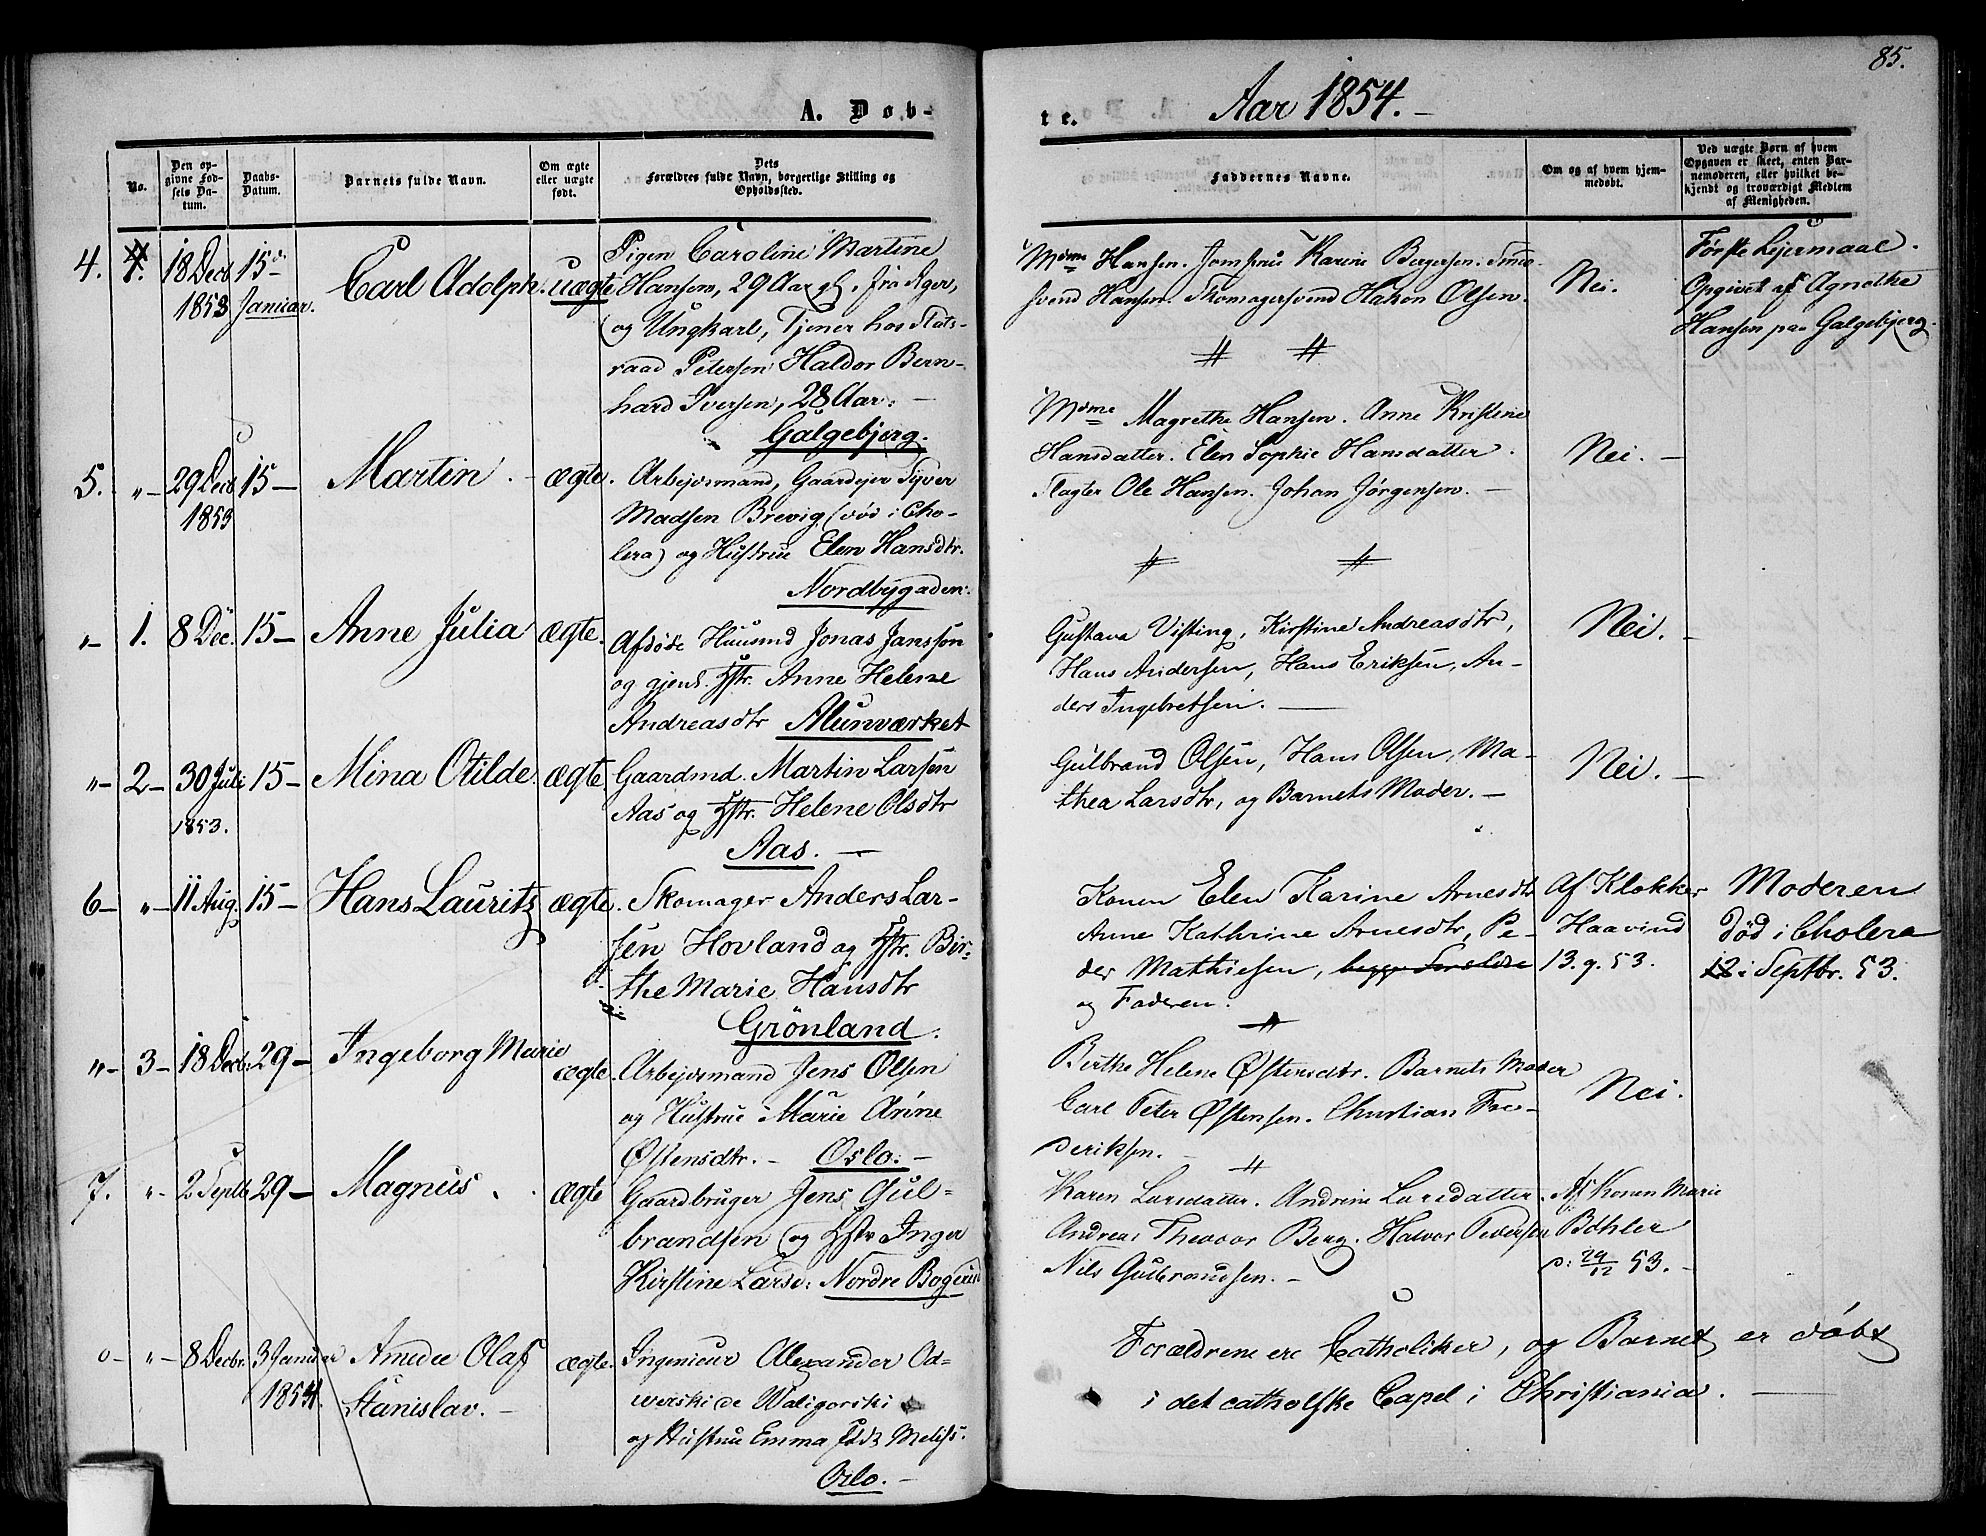 85.
A. Døb-
te. Aar 1854.-
No.
Den op-
givne Fød-
sels Da-
tum.
Daabs-
Datum.
Barnets fulde Navn.
Om ægte
eller uægte
født.
Dets
Forældres fulde Navn, borgerlige Stilling og
Opholdssted.
Faddernes Navne.
Om og af hvem hjem-
medøbt.
Ved uægte Børn af hvem
Opgaven er skeet, enten Bar-
nemoderen, eller hvilket be-
kjendt og troværdigt Medlem
af Menigheden.
4. 18 Decb 1853 15de Januar. Carl Adolph. uægte
Pigen Caroline Martine
Hansen, 29 Aar gl. fra Ager,
og Ungkarl, Tjener hos Stats-
raad Petersen Haldor Bern-
hard Iversen, 28 Aar. -
Galgebjerg.
Mdme Hansen. Jomfrue Karine Bergersen. Sme-
svend Hansen. Skomagersvend Hakon Olsen.
Nei.
Første Lejermaal.
Opgivet af Agnethe
Hansen paa Galgebjerg.
5. "- 29 Decb 1853 15- Martin. - ægte.
Arbejdsmand, Gaardejer Syver
Madsen Brevig (død i Cho-
lera) og Hustrue Elen Hansdtr.
Nordbygaden.
Mdme Magrethe Hansen. Anne Kristine
Hansdatter. Elen Sophie Hansdatter.
Slagter Ole Hansen. Johan Jörgensen. -
Nei. -
"- 1. 8 Dec. 15- Anne Julia ægte.
Afdøde Huusmd Jonas Jansson
og gjenl. Hstr. Anne Helene
Andreasdtr Alunværket
Gustava Visting, Kirstine Andreasdtr,
Hans Andersen, Hans Eriksen, An-
ders Ingebretsen. -
Nei. -
"- 2- 30 Juli 1853. 15- Mina Otilde. ægte.
Gaardmd. Martin Larsen
Aas og Hstr. Helene Olsdtr
Aas. -
Gulbrand Olsen, Hans Olsen, Ma-
thea Larsdtr, og Barnets Moder. -
Nei. -
6- "- 11 Aug. 15- Hans Lauritz ægte.
Skomager Anders Lar-
sen Hovland og Hstr. Bir-
the Marie Hansdtr
Grönland.
Konen Elen Karine Arnesdtr
Anne Kathrine Arnesdtr, Pe-
der Mathiesen,
og Faderen.
Af Klokker
Haavind
13. 9. 53.
Moderen
død i Cholera
i Septbr. 53.
"- 3- 18 Decb. 29- Ingeborg Marie ægte.
Arbejdsmand Jens Olsen
og Hustrue Marie Anine
Østensdtr. - Oslo. -
Berthe Helene Østensdtr. Barnets Moder
Carl Peter Østensen. Christian Fre-
deriksen. -
Nei.
7. "- 2 Septb 29- Magnus. ægte
Gaardbruger Jens Gul-
brandsen og Hstr Inger
Kirstine Larsd: Nordre Bogerud
Karen Larsdatter. Andrine Larsdatter.
Andreas Theodor Berg. Halvor Pedersen
Nils Gulbrandsen. -
Af Konen Marie
Böhler
d: 29/12 53. -
0- "- 8 Decbr. 3 Januar 1854. Amedee Olaf
Stanislav. -
ægte.
Ingenieur Alexander Od-
werski de Waligorski
og Hustrue Emma Meliss.
Oslo. -
Forældrene ere Catholiker, og Barnet er döbt
i det catholske Capel i Christiania. -